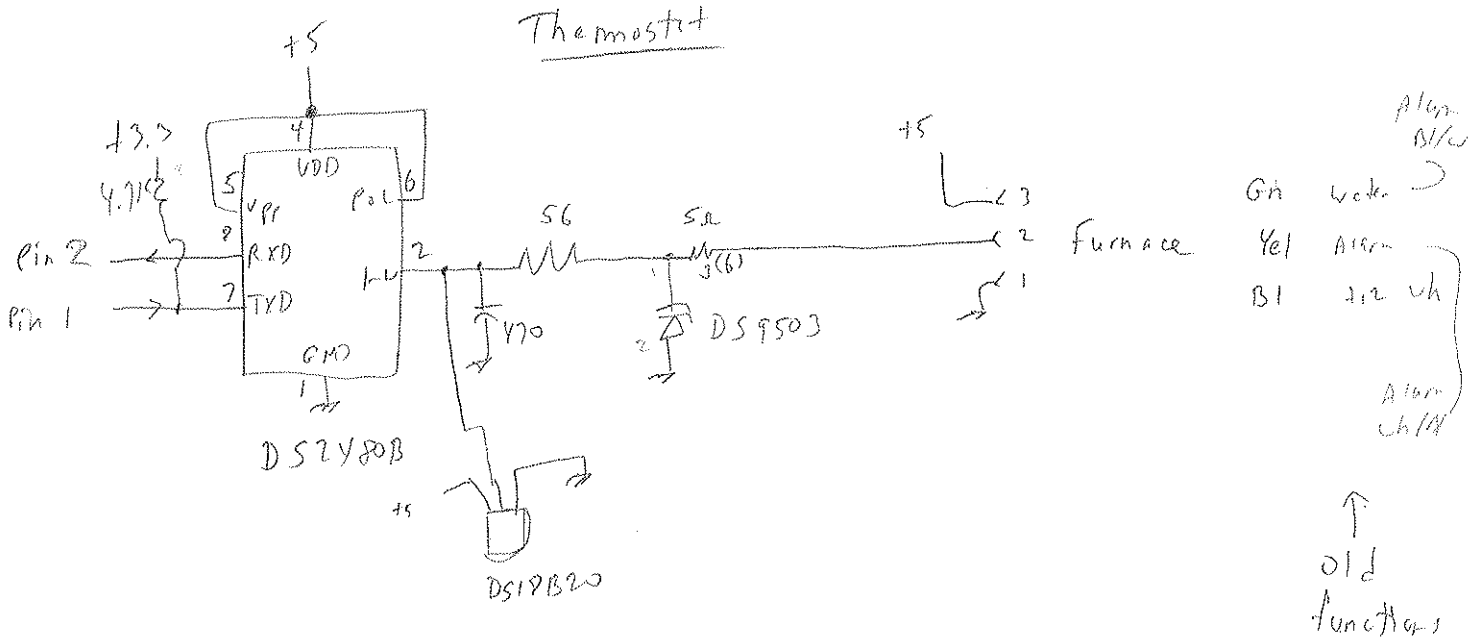 Thermostat
+5
+3.3
4.7K
4
VDD
5
VPP
POL
6
8
RXD
Pin 2
7
TXD
Pin 1
2
1-W
GND
1
DS2480B
56
470
1
5Ω
3(6)
2
DS9503
+5
DS18B20
+5
3
2
1
Furnace
Gn water
Yel Alarm
Bl
wh
Alarm
Bl/w
Alarm
old
functions